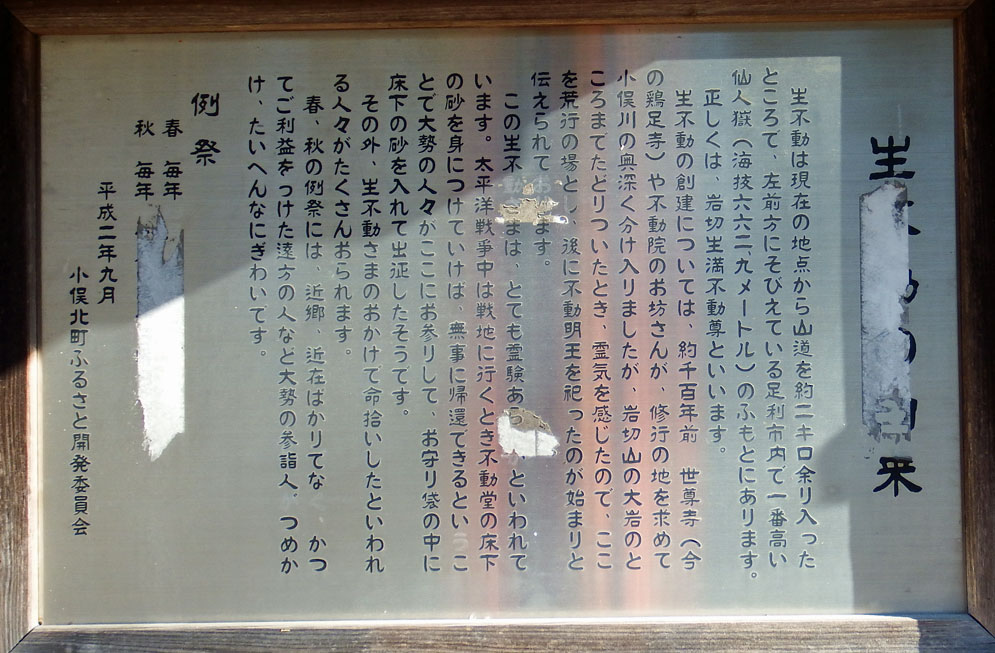 生 の 来
生不動は現在の地点から山道を約二キロ余り入った
ところで、左前方にそびえている足利市内で一番高い
仙人嶽（海抜六六二、九メートル）のふもとにあります。
正しくは、岩切生満不動尊といいます。
生不動の創建については、約千百年前 世尊寺（今
の鶏足寺）や不動院のお坊さんが、修行の地を求めて
小俣川の奥深く分け入りましたが、岩切山の大岩のと
ころまでたどりついたとき、霊気を感じたので、ここ
を荒行の場とし、後に不動明王を祀ったのが始まりと
伝えられております。
この生不動 まは、とても霊験あ かといわれて
います。太平洋戦争中は戦地に行くとき不動堂の床下
の砂を身につけていけば、無事に帰還できるというこ
とで大勢の人々がここにお参りして、お守り袋の中に
床下の砂を入れて出征したそうです。
その外、生不動さまのおかげで命拾いしたといわれ
る人々がたくさんおられます。
春、秋の例祭には、近郷、近在ばかりでな かつ
てご利益をうけた遠方の人など大勢の参詣人、つめか
け、たいへんなにぎわいです。
例祭
春 毎年
秋 毎年
平成二年九月
小俣北町ふるさと開発委員会